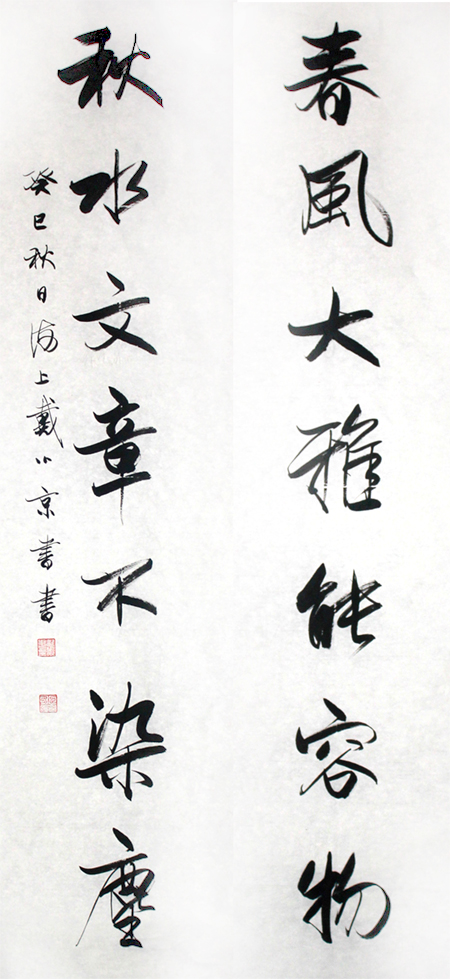 春風大雅能容物
秋水文章不染塵
癸巳秋日海上戴小京書書